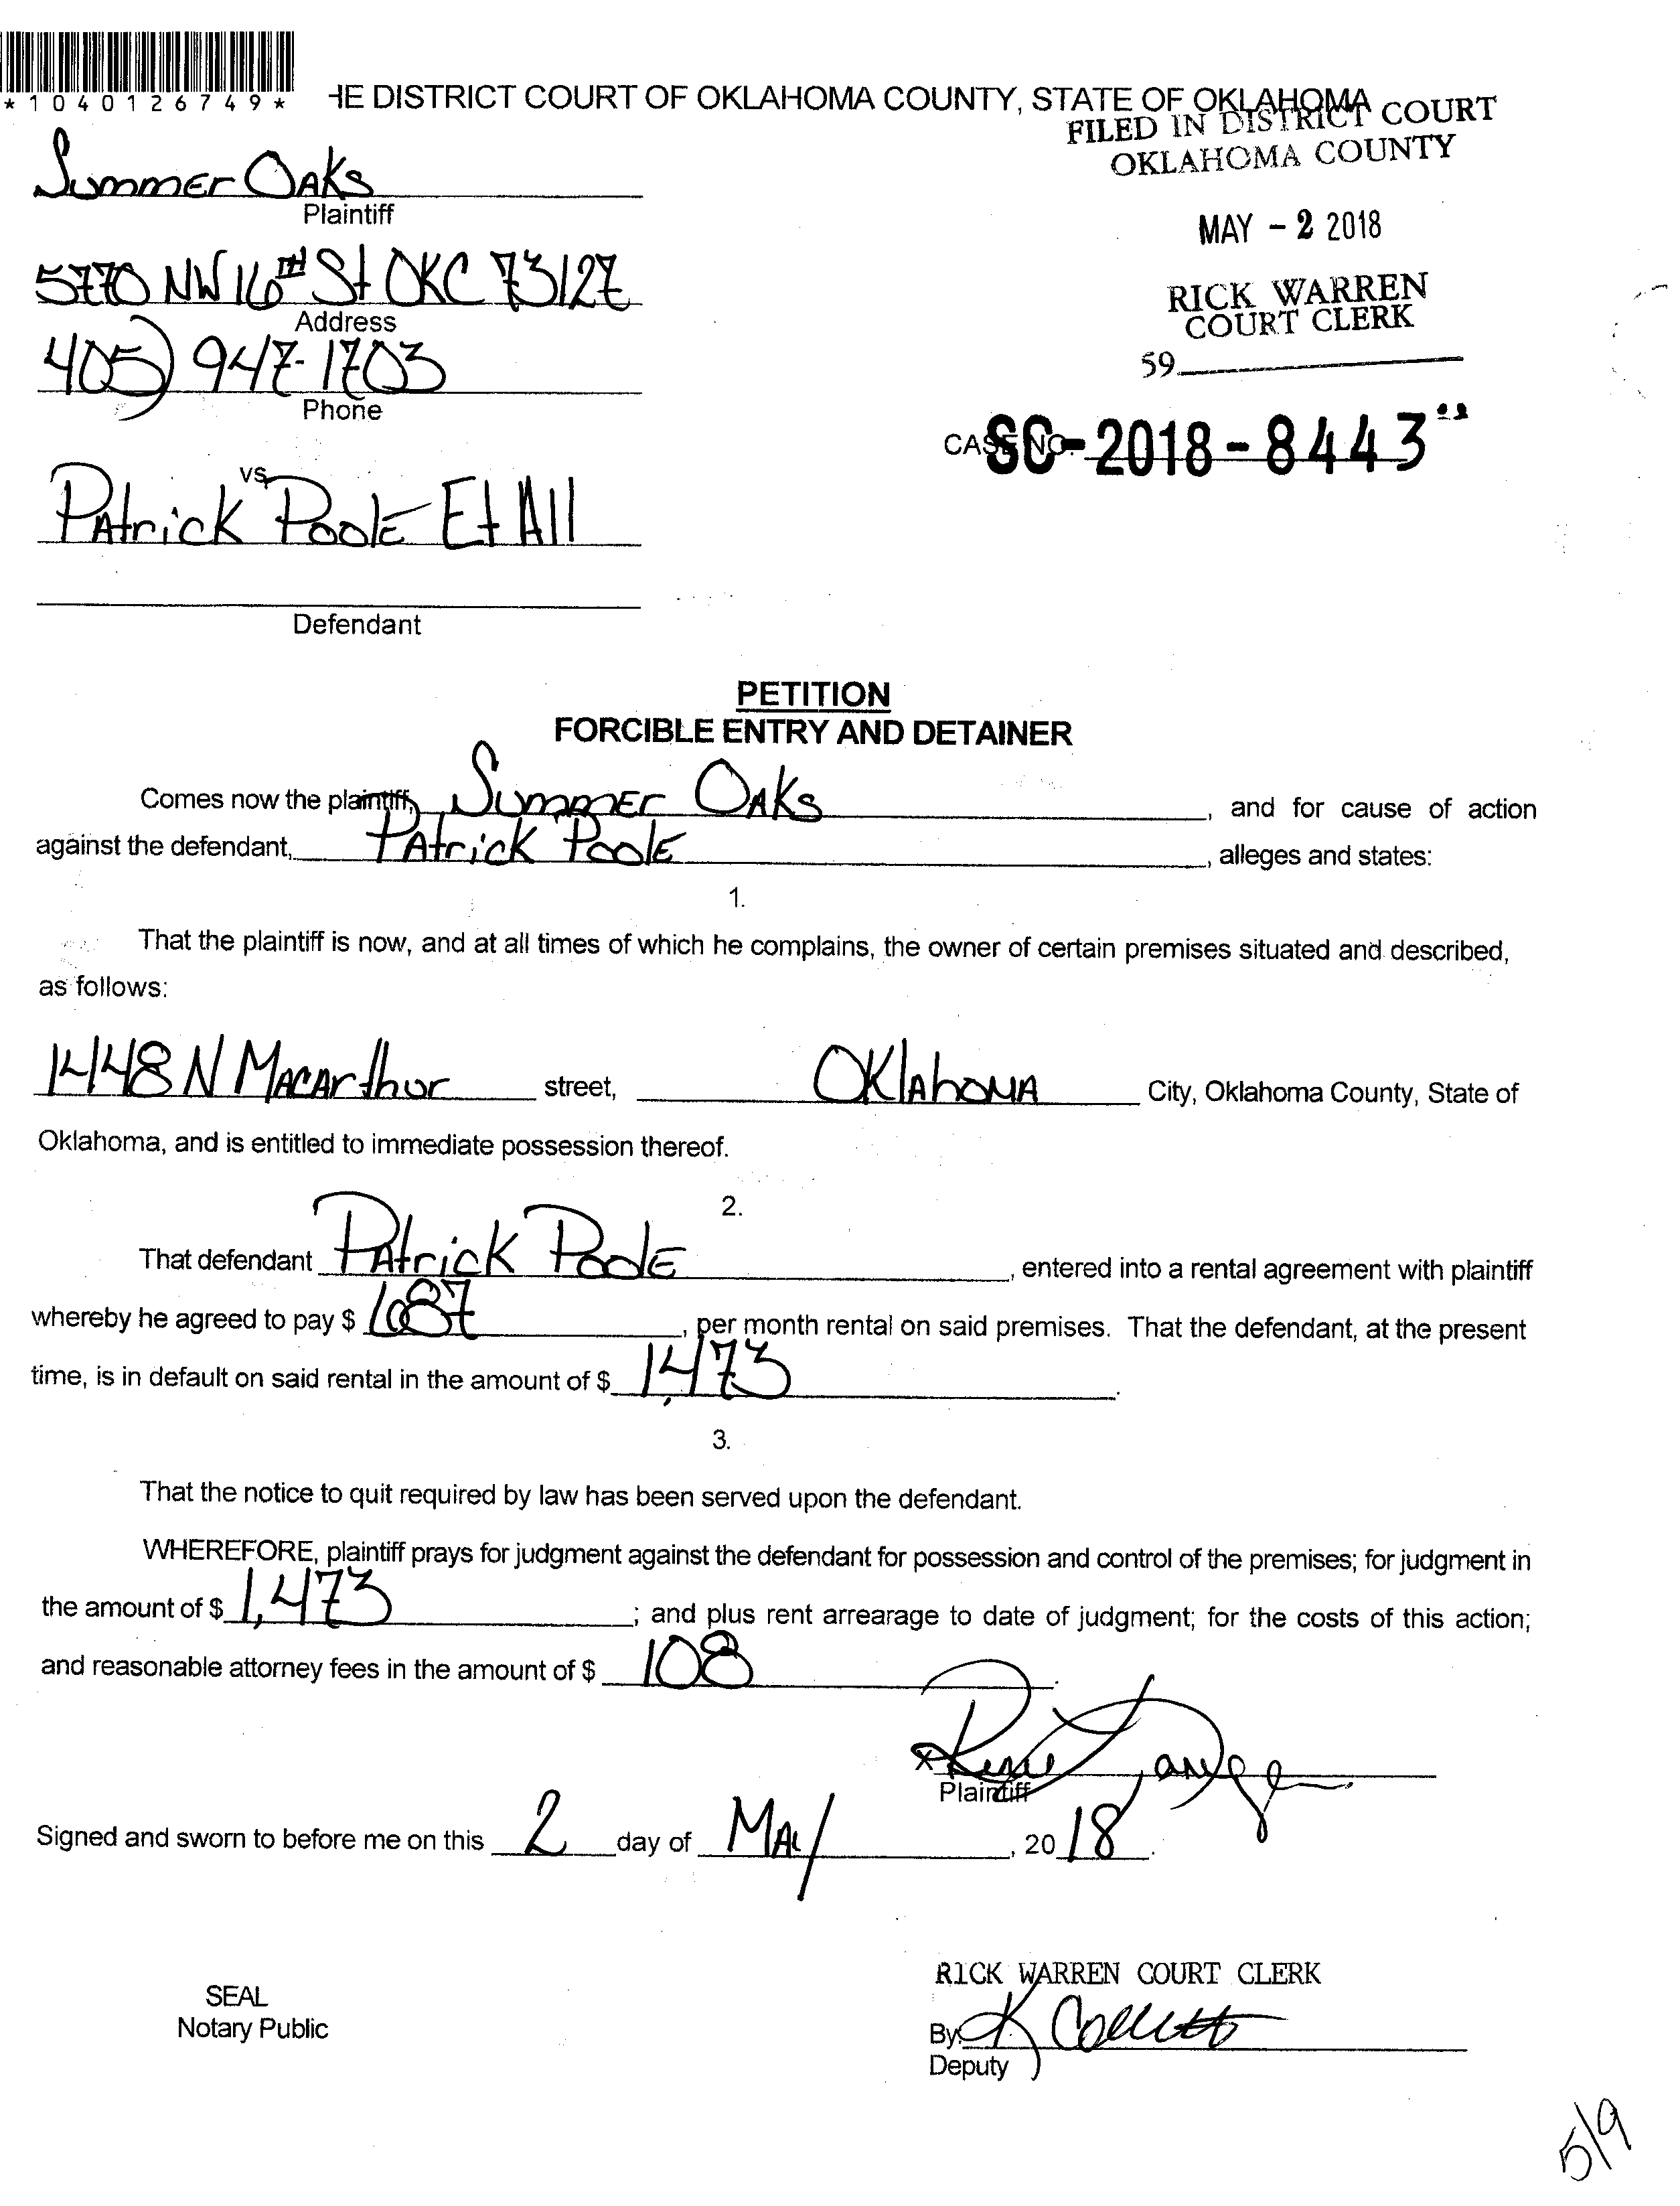 *1040126749*
HE DISTRICT COURT OF OKLAHOMA COUNTY, STATE OF OKLAHOMA
FILED IN DISTRICT COURT
OKLAHOMA COUNTY
Summer Oaks
Plaintiff
MAY - 2 2018
5770 NW 16TH St OKC 73127
Address
RICK WARREN
COURT CLERK
405) 947-1703
Phone
59
CASE NO. SC-2018-8443
vs.
Patrick Poole Et All
Defendant
PETITION
FORCIBLE ENTRY AND DETAINER
Comes now the plaintiff, Summer Oaks, and for cause of action
against the defendant, Patrick Poole, alleges and states:
1.
That the plaintiff is now, and at all times of which he complains, the owner of certain premises situated and described,
as follows:
1448 N MacArthur street, Oklahoma City, Oklahoma County, State of
Oklahoma, and is entitled to immediate possession thereof.
2.
That defendant Patrick Poole, entered into a rental agreement with plaintiff
whereby he agreed to pay $ 1087, per month rental on said premises. That the defendant, at the present
time, is in default on said rental in the amount of $ 1,473.
3.
That the notice to quit required by law has been served upon the defendant.
WHEREFORE, plaintiff prays for judgment against the defendant for possession and control of the premises; for judgment in
the amount of $ 1,473; and plus rent arrearage to date of judgment; for the costs of this action;
and reasonable attorney fees in the amount of $ 108.
x
Plaintiff
Signed and sworn to before me on this 2 day of May, 2018.
RICK WARREN COURT CLERK
SEAL
Notary Public
By: K
Deputy
5/9